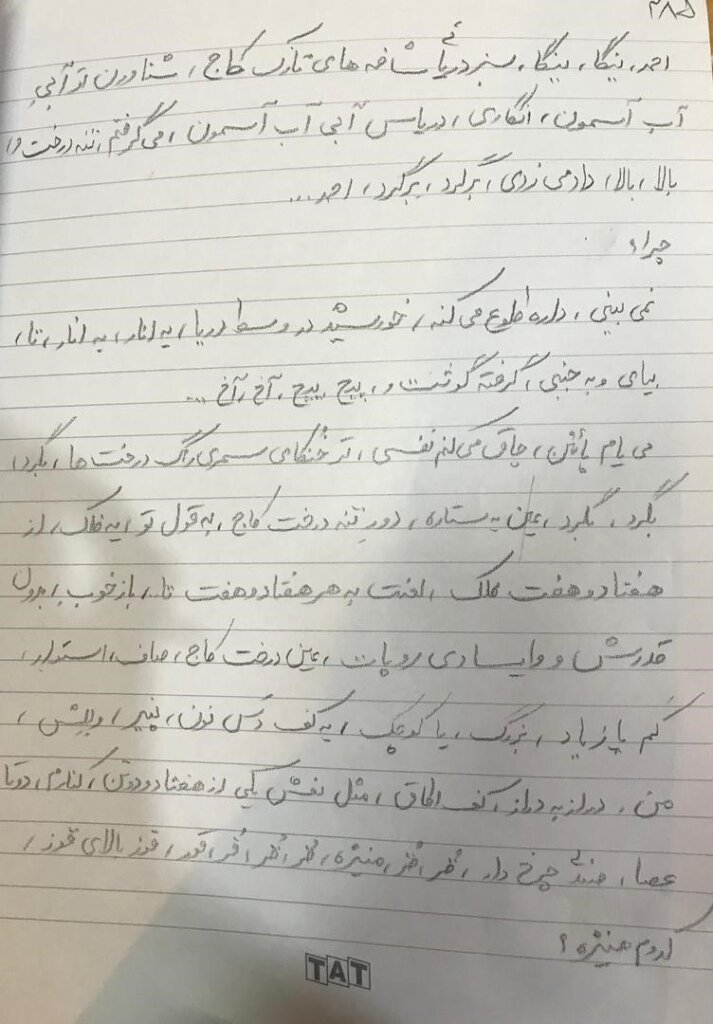 ۲۸۵
احمد، نیگا، نیگا، سبز دریائی شاخه های نازک کاج، شناورن تو آبیِ
آبِ آسمون، انگاری، دریاس آبی آب آسمون، می گرفتم تنه درخت و،
بالا، بالا، داد می زدی، برگرد، برگرد، احمد...
چرا؟
نمی بینی، داره طلوع می کنه، خورشید در وسط دریا، یه انار، یه انار، تا،
بیای و به جنبی، گرفته گوشت و، پیچ پیچ، آخ، آخ ...
می یام پائین، چاق می کنم نفسی، تو خُنکای رگ درخت ها، بگرد،
بگرد، بگرد، عین یه ستاره، دورِ تنه درخت کاج، به قول تو، یه فلک، از
هفتاد و هفت فلک، لعنت به هر هفتاد و هفت تا، باز خوب، بدون
قدرش و وایسادی رو پات، عین درخت کاج، صاف، استوار،
کم یا زیاد، بزرگ، یا کوچک، یه کف دَس نون، پنیر، ولش،
من، دراز به دراز، کف اطاق، مثل نعش یکی از هفتاد و دو تن، کنارم، دو تا
عصا، صندلی چرخ دار، منیژه، قوز بالای قوز،
کدوم منیژه؟
TAT